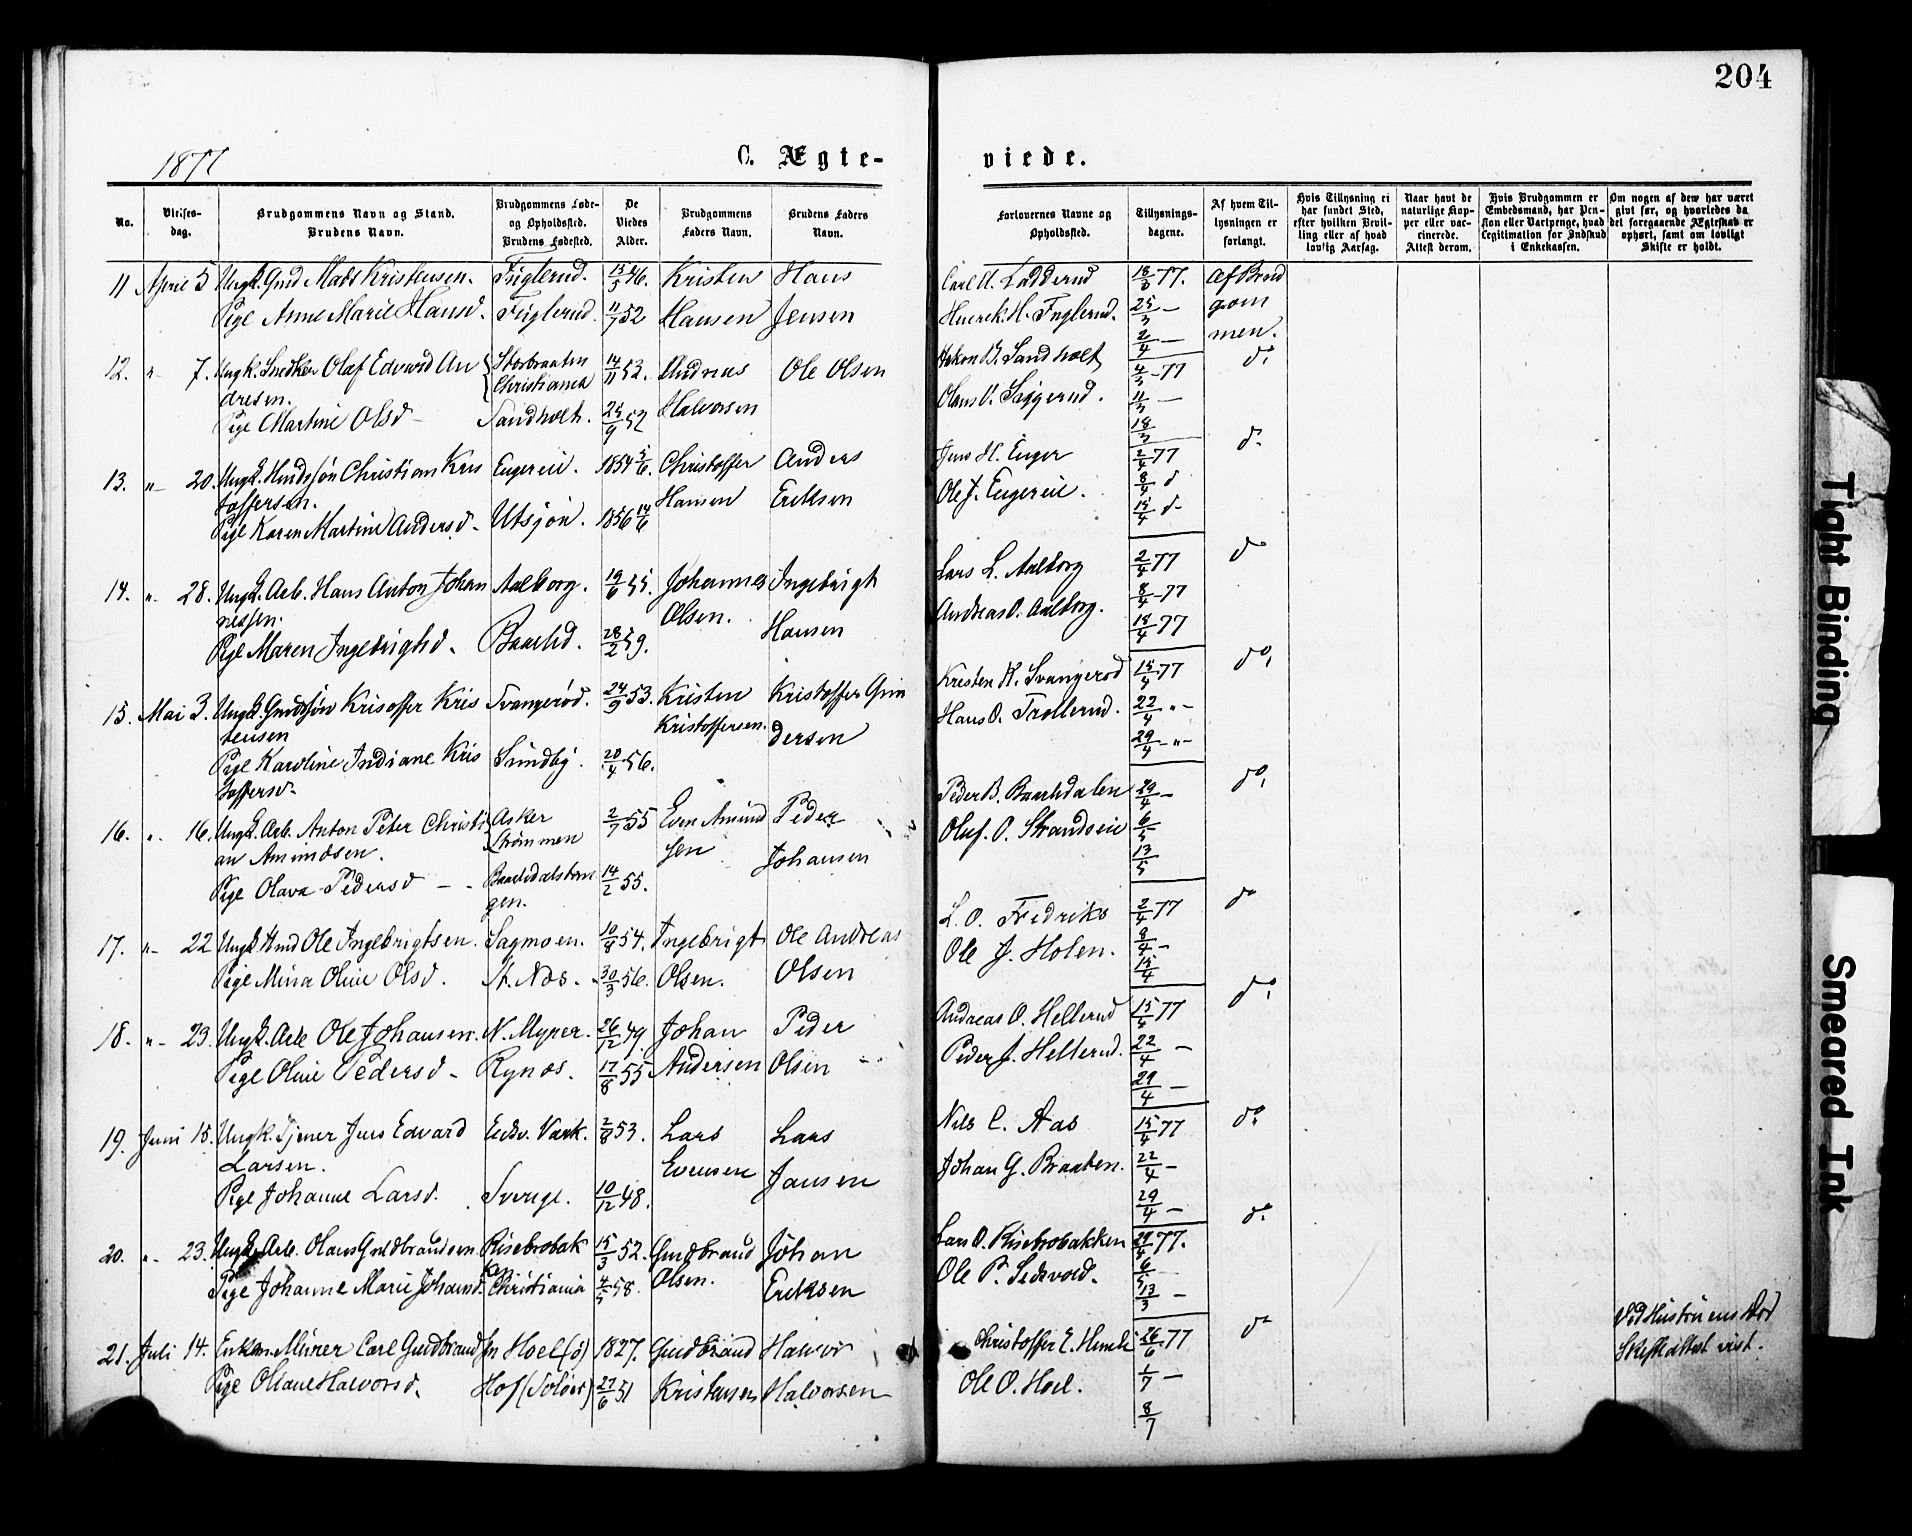 204
1877
C. Ægte-
viede.
No.
Vielses-
dag.
Brudgommens Navn og Stand.
Brudens Navn.
Brudgommens Føde-
og Opholdssted.
Brudens Fødested.
De
Viedes
Alder.
Brudgommens
Faders Navn.
Brudens Faders
Navn.
Forlovernes Navne og
Opholdssted.
Tillysnings-
dagene.
Af hvem Til-
lysningen er
forlangt.
Hvis Tillysning ei
har fundet Sted,
efter hvilken Bevil-
ling eller af hvad
lovlig Aarsag.
Naar havt de
naturlige Kop-
per eller vac-
cinerede.
Attest derom.
Hvis Brudgommen er
Embedsmand, har Pen-
sion eller Vartpenge, hvad
Legitimation for Indskud
i Enkekassen.
Om nogen af dem har været
gift før, og hvorledes da
det foregaaende Ægteskab er
ophørt, samt om lovligt
Skifte er holdt.
11 April 5 Ungk. Gmd Mads Kristensen. Fuglerud. 13/5 46. Kristen Hans
Pige Anne Marie Hansd. Fuglerud. 11/7 52 Hansen Jensen
Carl H. Ladderud 18/3 77. Af Brud
Henrik. H. Fuglerud. 25/3 — gom
2/4 — men.
12. " 7. Ungk. Snedker Olaf Edvard An Storbraaten 14/11 53. Andreas Ole Olsen
dresen. Christiania
Pige Martine Olsd — Sandholt. 25/9 52 Halvorsen
Hakon B. Sandholt 4/3 -77 do
Olaus O. Saggerud. 11/3 —
18/3
13. " 20. Ungk. Christian Kris Engereie. 1854 5/6. Christoffer Anders
toffersen. Hansen Eriksen
Pige Karen Martine Andersd. Utsjøn. 1856 14/6
Jens H. Enger 2/4 77 do
Ole J. Engereie. 8/4 d
15/4 d-
14. " 28. Ungk. Arb. Hans Anton Johan Aalborg. 19/6 55. Johannes Ingebrigt
nessen. Olsen.
Pige Maren Ingebrigtsd. Baarlid. 28/2 59. Hansen
Lars L. Aalborg 2/4 77 do
Andreas O. Aalborg. 8/4 -77
15/4 77
15. Mai 3. Ungk. Gaardssøn Krisoffer Kris Svangerød. 24/9 53. Kristen Kristoffer Gun
tensen Kristoffersen. dersen
Pige Karoline Indiane Kris Sundby. 20/4 56.
toffersd.
Kristen K. Svangerød 15/4 77 do.
Hans O. Trollerud. 22/4 " -
29/4 - " -
16. " 16. Ungk. Arb. Anton Peter Christi Asker 2/7 55 Even Amund Peder
an Amundsen. Strømmen sen Johansen
Pige Olava Pedersd — - 14/2 55.
gen.
Peder B. Baarlidalen 29/4 — do.
Oluf. O. Strandseie 6/5
13/5
17. " 22 Ungk. Gmd Ole Ingebrigtsen. Sagmoen. 10/8 54. Ingebrigt Ole Andreas
Pige Mina Oline Olsd. N. Næs. 30/3 56. Olsen. Olsen
L. O. Fredriks 2/4 77 do
Ole J. Holen. 8/4 —
15/4
18. " 23. Ungk. Arb Ole Johansen. N. Myrer. 26/12 49. Johan Peder
Pige Oline Pedersd — Rynæs. 17/8 55 Andersen Olsen
Andreas O. Hellerud 15/4 77 do.
Peder J. Hellerud. 22/4 —
29/4 —
19. Juni 15. Ungk. Tjener Jens Edvard Eidsv. Værk. 2/8 53. Lars Lars
Larsen. Evensen Jansen
Pige Johanne Larsd. Sverige. 10/12 48.
Nils C. Aas 15/4 77 do.
Johan G. Braaten. 22/4 —
29/4 —
20. " 23. Ungk. Arb. Olaus Guldbrandsen Risebrobak 15/3 52. Guldbrand Johan
ken.
Pige Johanne Marie Johansd. Christiania 4/5 58. Olsen. Eriksen
Lars O. Risebrobakken 29/4 77. do.
Ole P. Sedsvold. 6/5 —
13/3 —
21. Juli 14. Enkem. Murer Carl Guldbrand Hoel (ø) 1827. Guldbrand Halvor
Pige Oliane Halvorsd. Hof (Solør) 27/6 51 Kristensen Halvorsen
Christoffer E. Hemli 26/6 77 do Ved Hustruens Død
Ole O. Hoel. 1/7 — Skifteattest vist.
8/7
Tight Binding
Smeared Ink